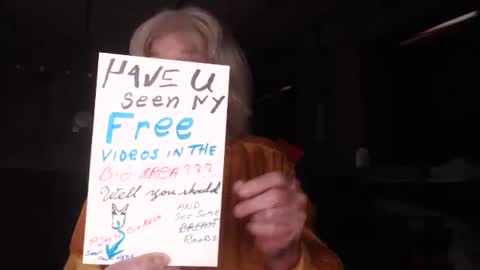 HAVE U
seen MY
Free
VIDEOS IN THE
BIO AREA???
Well you should
AND
SEE SOME
BREAST
BOOBS
BIO AREA